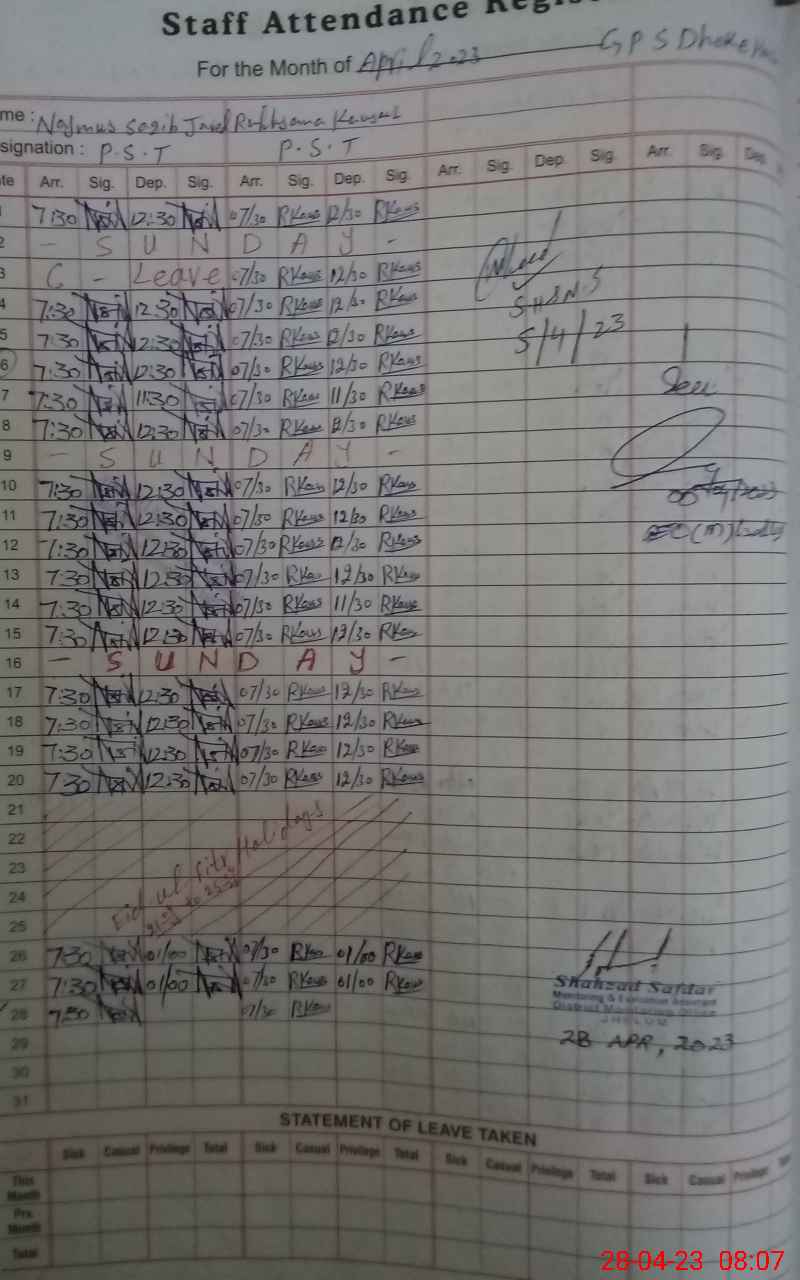 Staff Attendance Regis
For the Month of April 2023 GPS Dheke
me : Najmus Saqib Javed Rukhsana Kausar
signation : P.S.T P.S.T
te Arr. Sig. Dep. Sig. Arr. Sig. Dep. Sig. Arr. Sig. Dep. Sig. Arr. Sig. Dep.
1 7:30 12:30 07/30 RKaus 12/30 RKaus
2 - S U N D A Y -
3 C - Leave 07/30 RKaus 12/30 RKaus
4 7:30 12:30 07/30 RKaus 12/30 RKaus
5 7:30 12:30 07/30 RKaus 12/30 RKaus
5/4/23
6 7:30 12:30 07/30 RKaus 12/30 RKaus
7 7:30 11:30 07/30 RKaus 11/30 RKaus
Seen
8 7:30 12:30 07/30 RKaus 12/30 RKaus
9 - S U N D A Y -
10 7:30 12:30 07/30 RKaus 12/30 RKaus
11 7:30 12:30 07/30 RKaus 12/30 RKaus
12 7:30 12:30 07/30 RKaus 12/30 RKaus
13 7:30 12:30 07/30 RKaus 12/30 RKaus
14 7:30 12:30 07/30 RKaus 11/30 RKaus
15 7:30 12:30 07/30 RKaus 12/30 RKaus
16 - S U N D A Y -
17 7:30 12:30 07/30 RKaus 12/30 RKaus
18 7:30 12:30 07/30 RKaus 12/30 RKaus
19 7:30 12:30 07/30 RKaus 12/30 RKaus
20 7:30 12:30 07/30 RKaus 12/30 RKaus
21
22
23
24
25
Eid ul fitr Holidays
26 7:30 01/00 07/30 RKaus 01/00 RKaus
27 7:30 01/00 07/30 RKaus 01/00 RKaus
28 7:30 07/30 RKaus
Shahzad Safdar
Monitoring & Evaluation Assistant
District Monitoring Office
JHELUM
28 APR, 2023
29
30
31
STATEMENT OF LEAVE TAKEN
Sick Casual Privilege Total Sick Casual Privilege Total Sick Casual Privilege Total Sick Casual Privilege
This Month
Prv. Month
Total
28-04-23 08:07